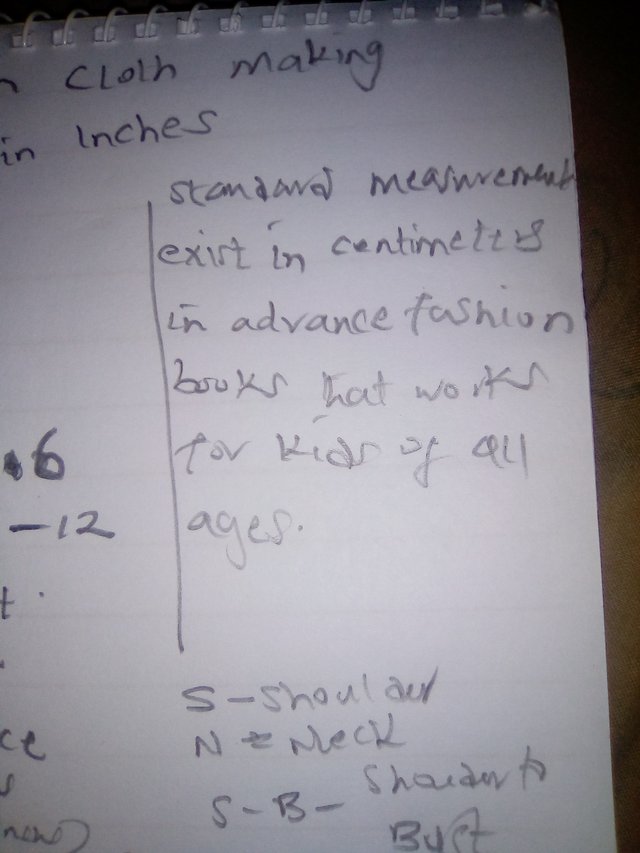 n Cloth making
in Inches
standard measurement
exist in centimeters
in advance fashion
books that works
for kids of all
ages.
.6
-12
t.
S - Shoulder
N = Neck
ce
s
S - B - Shoulder to
Bust